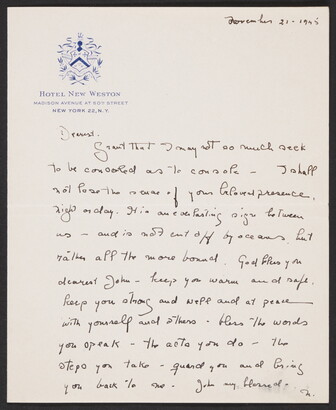 November 21 - 1945
HOTEL NEW WESTON
MADISON AVENUE AT 50TH STREET
NEW YORK 22, N.Y.
Dearest.
Grant that I may not so much seek
to be consoled as to console - I shall
not lose the sense of your beloved presence,
night or day. It is an everlasting sign between
us - and is not cut off by oceans, but
rather all the more bound. God bless you
dearest John - keep you warm and safe.
keep you strong and well and at peace
with yourself and others - bless the words
you speak - the acts you do - the
steps you take - guard you and bring
you back to me - John my blessed -